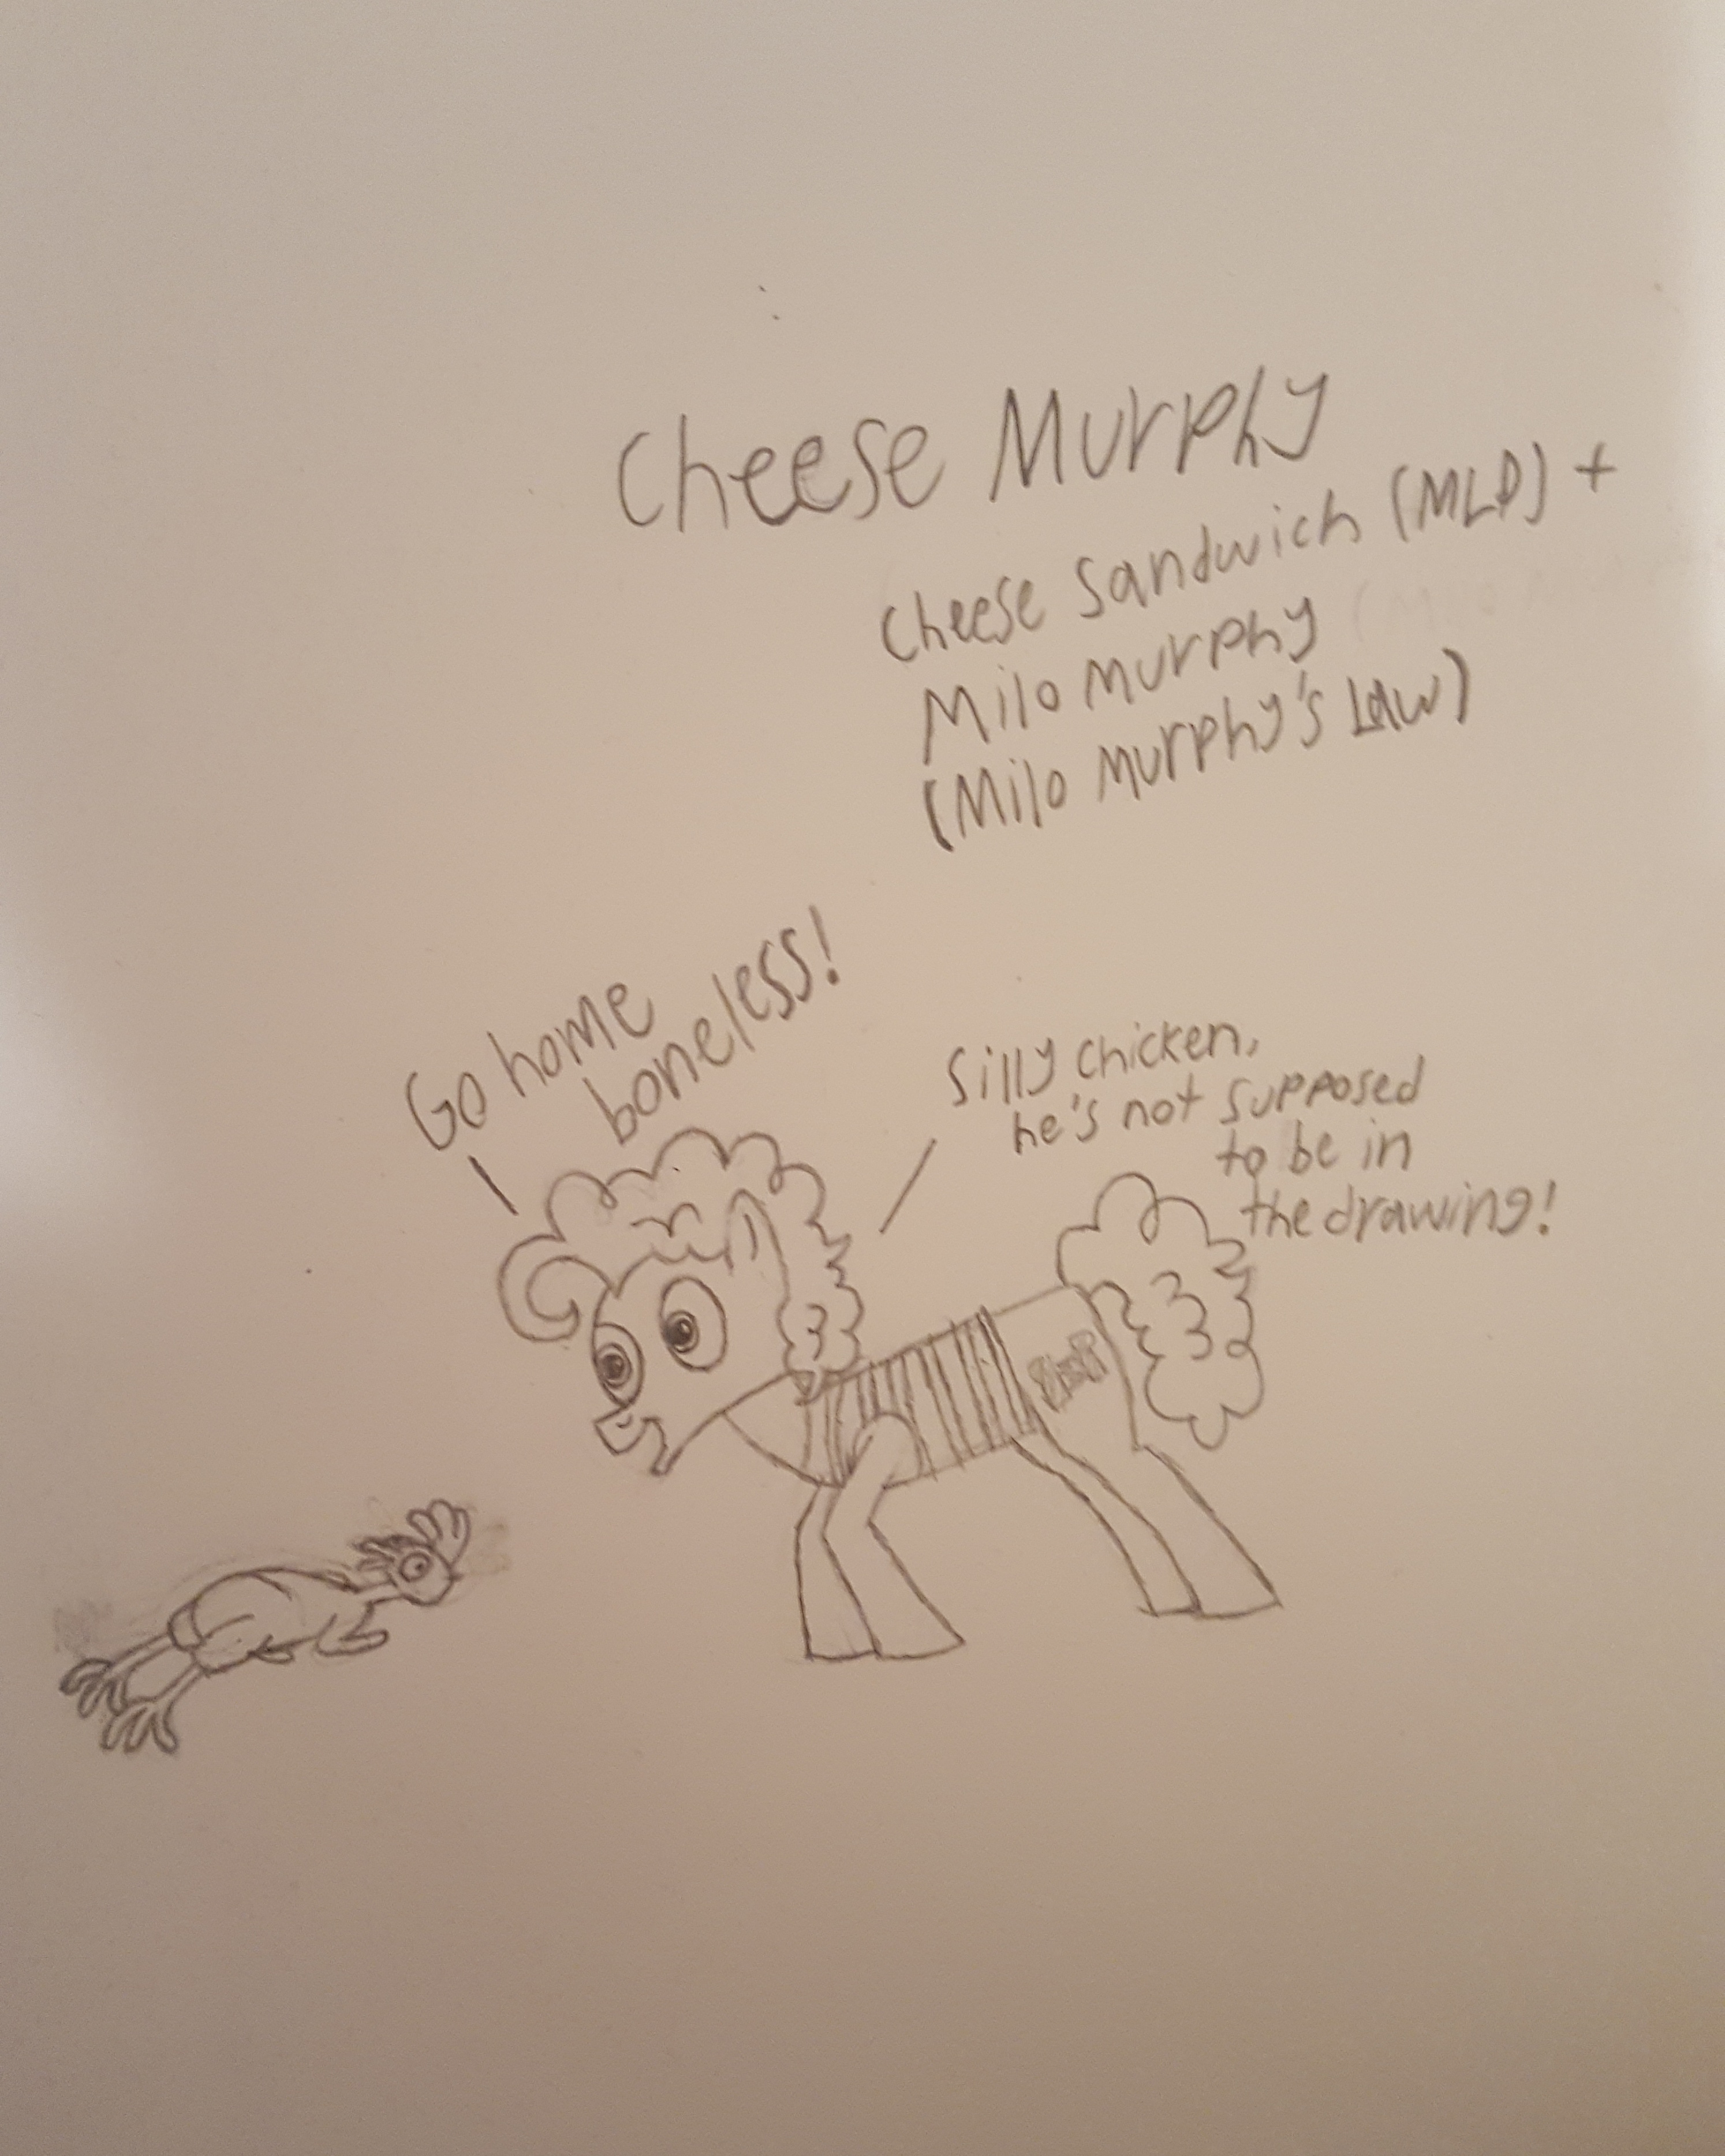 Cheese Murphy
Cheese Sandwich (MLP) +
Milo Murphy
(Milo Murphy's Law)
Go home
boneless!
Silly chicken,
he's not supposed
to be in
the drawing!